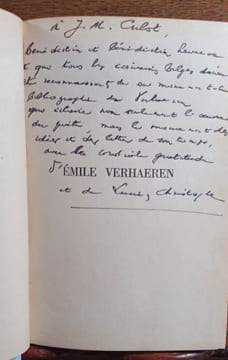 à J. M. Culot,
Bénédictin et
que tous les écrivains belges doivent
et reconnaissance de son monumentale
bibliographie de Verhaeren
qui éclaire non seulement l'œuvre
du poète, mais le mouvement des
idées et des lettres de son temps,
avec la cordiale gratitude
D'ÉMILE VERHAEREN
et de Lucien Christophe